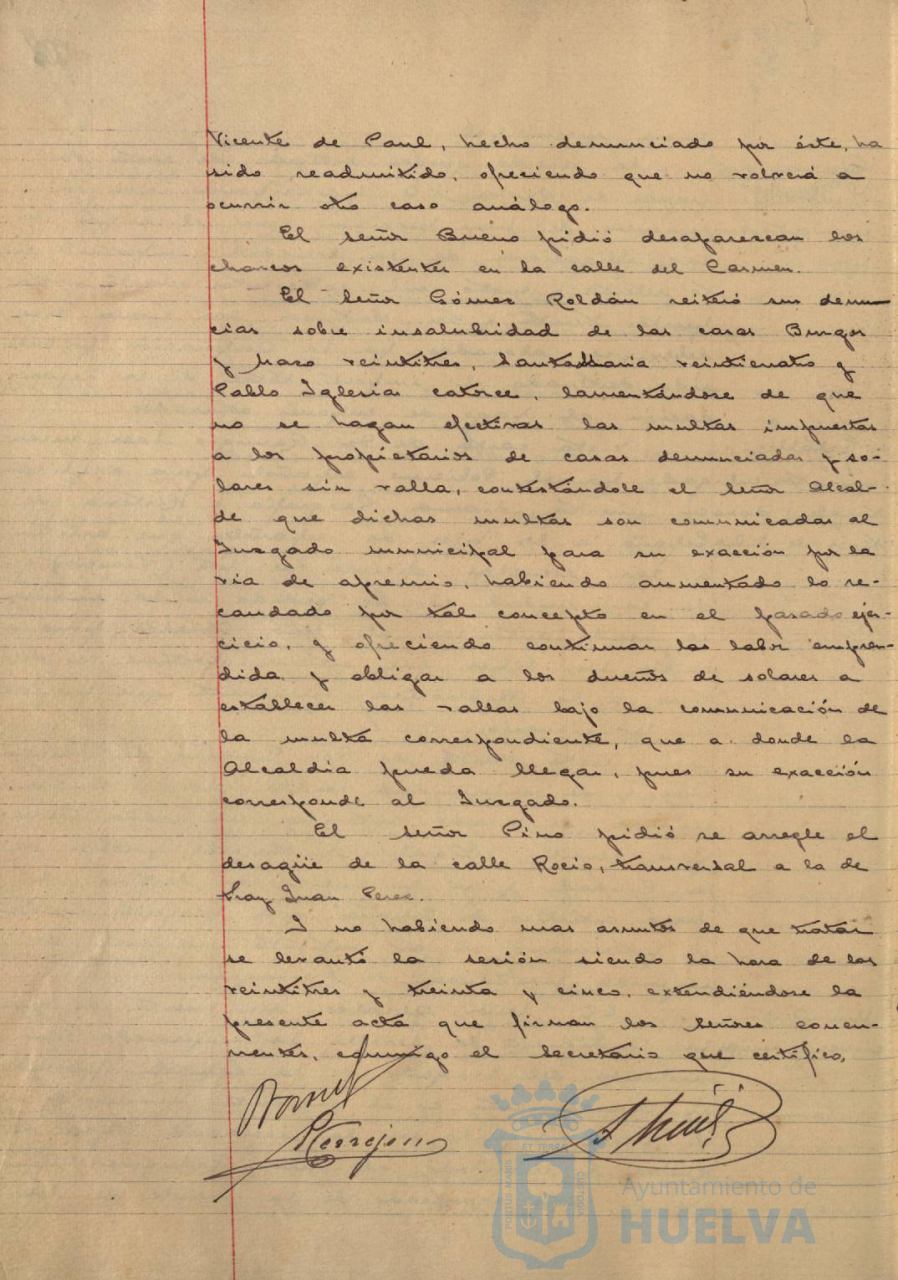 Vicente de Paul, hecho denunciado por éste, ha
sido readmitido, ofreciendo que no volverá a
ocurrir otro caso análogo.
El señor Bueno pidió desaparezcan los
charcos existentes en la calle del Carmen.
El señor Gómez Roldán reiteró sus denun-
cias sobre insalubridad de las casas Burgos
y Mazo veintitres, Santa Maria veinticuatro y
Pablo Iglesia catorce, lamentándose de que
no se hagan efectivas las multas impuestas
a los propietarios de casas denunciadas y so-
lares sin valla, contestándole el señor Alcal-
de que dichas multas son comunicadas al
Juzgado municipal para su exacción por la
via de apremio, habiendo aumentado lo re-
caudado por tal concepto en el pasado ejer-
cicio, y ofreciendo continuar las labor empren-
dida y obligar a los dueños de solares a
establecer las vallas bajo la comunicación de
la multa correspondiente, que a donde la
Alcaldia pueda llegar, pues su exacción
corresponde al Juzgado.
El señor Pino pidió se arregle el
desagüe de la calle Rocio, transversal a la de
Fray Juan Perez.
I no habiendo mas asuntos de que tratar
se levantó la sesión siendo la hora de las
veintitres y treinta y cinco, extendiéndose la
presente acta que firman los señores concu-
rrentes, conmigo el Secretario que certifico.
Ayuntamiento de
HUELVA